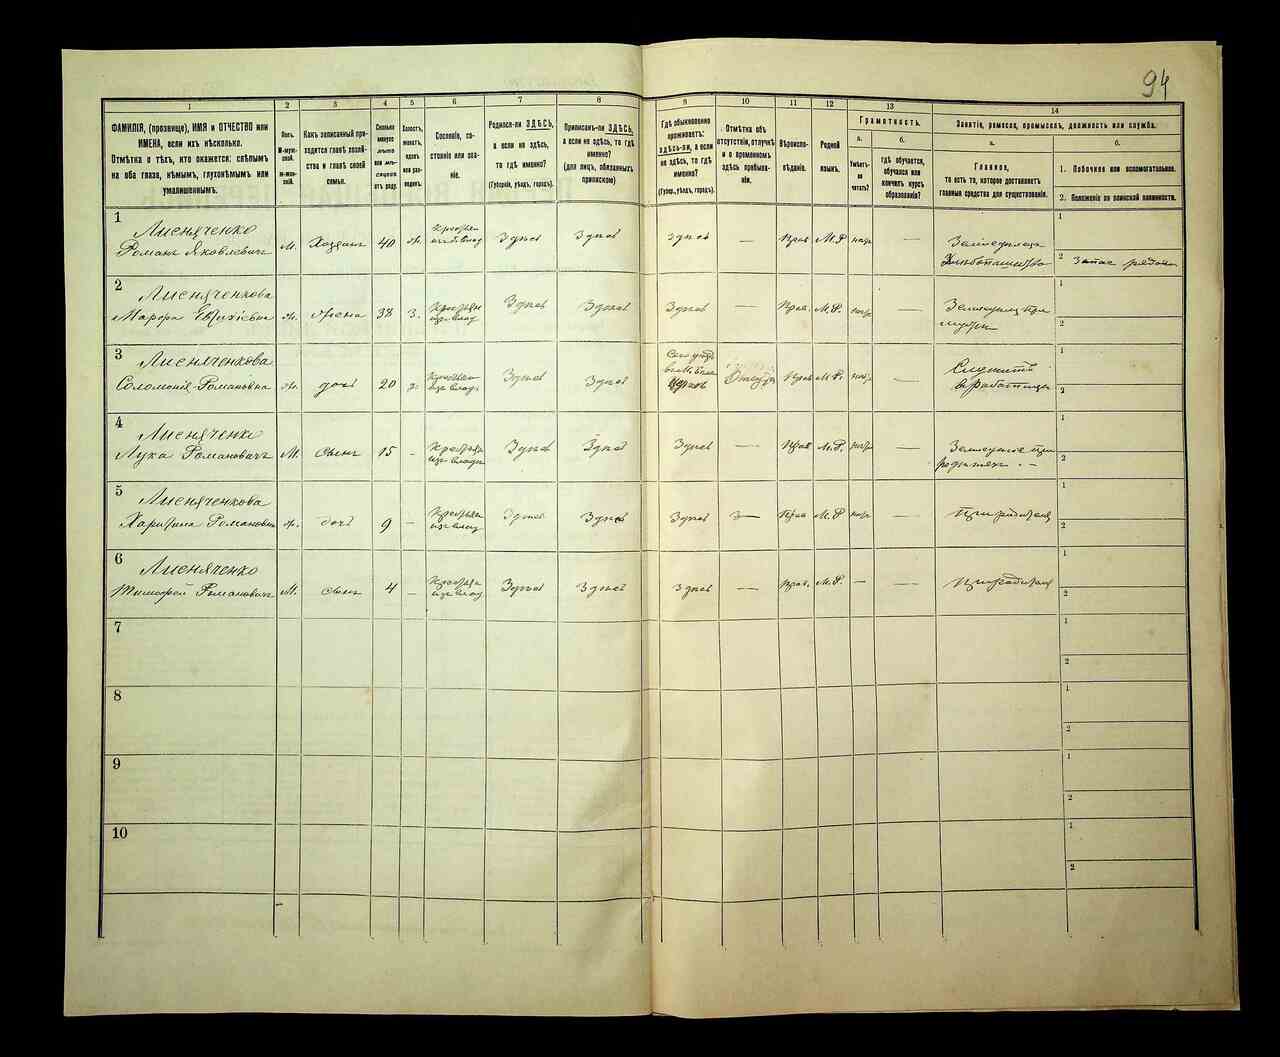 94
1
2
3
4
5
6
7
8
9
10
11
12
13
14
ФАМИЛІЯ, (прозвище), ИМЯ и ОТЧЕСТВО или
ИМЕНА, если ихъ нѣсколько.
Отмѣтка о тѣхъ, кто окажется: слѣпымъ
на оба глаза, нѣмымъ, глухонѣмымъ или
умалишеннымъ.
Полъ.
М-муж-
ской.
Ж-жен-
скій.
Какъ записанный при-
ходится главѣ хозяй-
ства и главѣ своей
семьи.
Сколько
минуло
лѣтъ
или мѣ-
сяцевъ
отъ роду.
Холостъ,
женатъ,
вдовъ
или раз-
веденъ.
Сословіе, со-
стояніе или зва-
ніе.
Родился-ли ЗДѢСЬ,
а если не здѣсь,
то гдѣ именно?
(Губернія, уѣздъ, городъ).
Приписанъ-ли ЗДѢСЬ,
а если не здѣсь, то гдѣ
именно?
(для лицъ, обязанныхъ
припискою)
Гдѣ обыкновенно
проживаетъ:
здѣсь-ли, а если
не здѣсь, то гдѣ
именно?
(Губер., уѣздъ, городъ).
Отмѣтка объ
отсутствіи, отлучкѣ
и о временномъ
здѣсь пребыва-
ніи.
Вѣроиспо-
вѣданіе.
Родной
языкъ.
Грамотность.
а.
Умѣетъ-
ли
читать?
б.
гдѣ обучается,
обучался или
кончилъ курсъ
образованія?
Занятіе, ремесло, промыселъ, должность или служба.
а.
Главное,
то есть то, которое доставляетъ
главныя средства для существованія.
б.
1. Побочное или вспомогательное.
2. Положеніе по воинской повинности.
1
Лисняченко
Романъ Яковлевичъ
М. Хозяинъ 40 ж. Здѣсь Здѣсь Здѣсь — Прав М.Р. —
1
2 Запас рядов
2
Лисняченкова
Марфа
ж. Жена 38 з. Здѣсь Здѣсь Здѣсь — Прав. М.Р. —
1
2
3
Лисняченкова
Соломонія Романовна
ж. дочь 20 Здѣсь Здѣсь Прав М.Р. —
Служитъ
в работницы
1
2
4
Лисняченко
Лука Романовичъ
М. сынъ 15 - Здѣсь Здѣсь Здѣсь — Прав М.Р. —
1
2
5
Лисняченкова
Харитина Романовна
ж. дочь 9 - Здѣсь Здѣсь Здѣсь Прав М.Р —
1
2
6
Лисняченко
Тимофей Романовичъ
М. сынъ 4 - Здѣсь Здѣсь Здѣсь — Прав. М.Р. — —
1
2
7
1
2
8
1
2
9
1
2
10
1
2